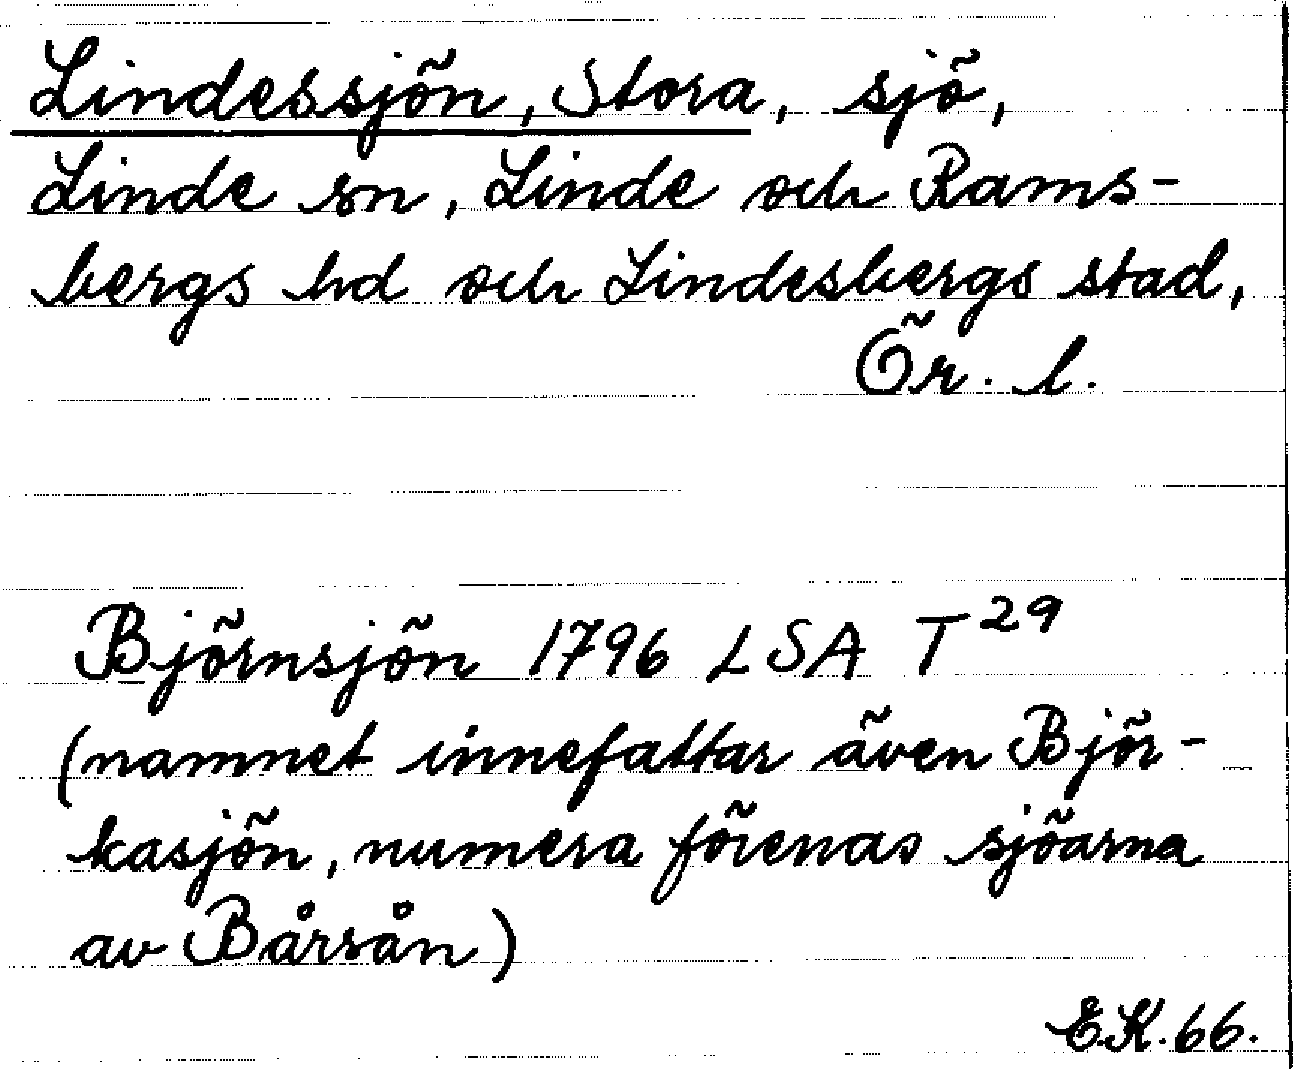 Lindessjön, Stora, sjö,
Linde sn, Linde och Rams-
bergs hd och Lindesbergs stad,
Ör. l.
Björnsjön 1796 LSA T 29
(namnet innefattar även Björ-
kasjön, numera förenas sjöarna
av Bårsån)
EK. 66.